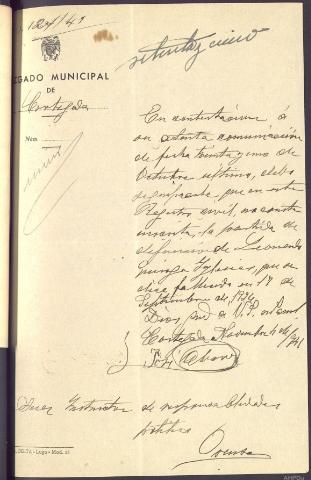 124/41
setenta y cinco
JUZGADO MUNICIPAL
DE
Cortegada
Núm.
En contestación á
su atenta comunicación
de fecha treinta y uno de
Octubre último, debo
significarle, que en este
Registro civil, no consta
inscrita, la partida de
defuncion de Leonardo
Quiroga Iglesias, que se
dice fallecido en 18 de
Septiembre de 1936.
Dios gue a V.S. m.
Cortegada Noviembre 4 de 1941
José
Juez Instructor de responsabilidades
políticas
Orense
CELTA.-Lugo.-Mod.
AHPOu